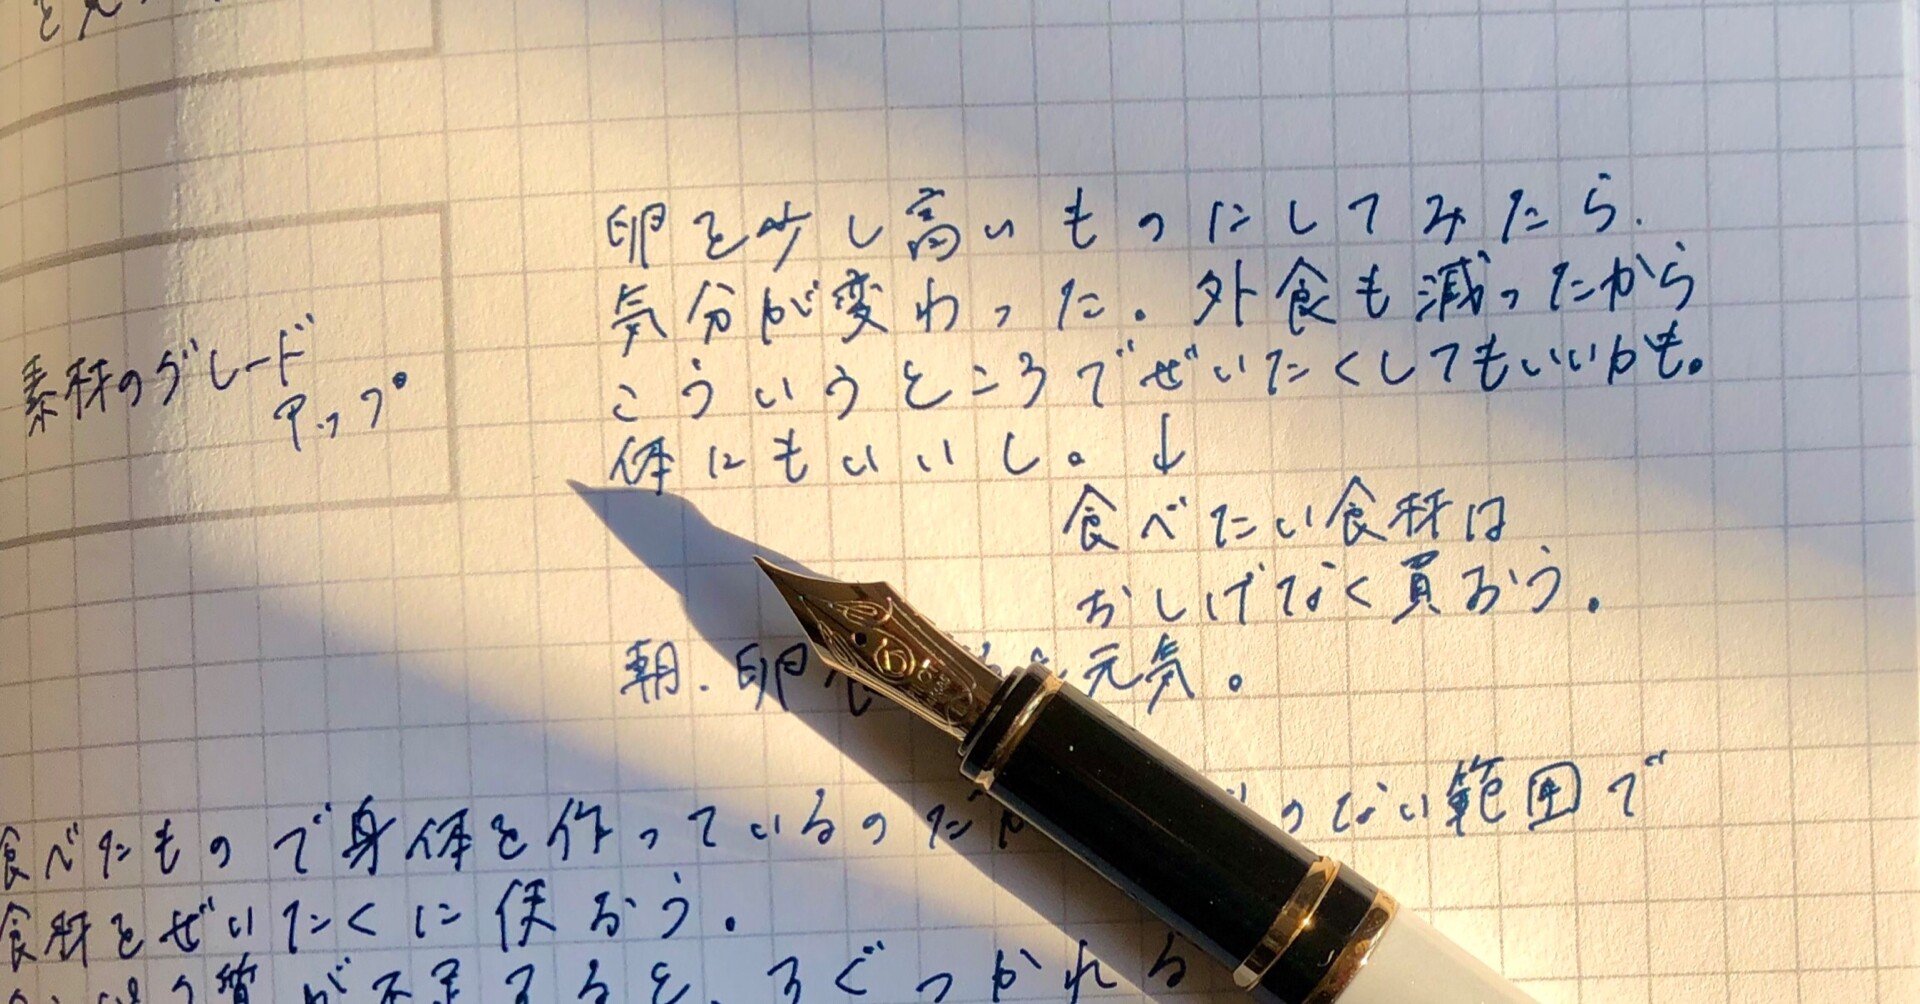 素材のグレード
アップ
卵を少し高いものにしてみたら、
気分が変わった。外食も減ったから
こういうところでぜいたくしてもいいかも。
体にもいいし。↓
食べたい食材は
おしげなく買おう。
朝、卵 元気。
食べたもので身体を作っているのだ のない範囲で
食材をぜいたくに使おう。
質が不足すると、すぐつかれる